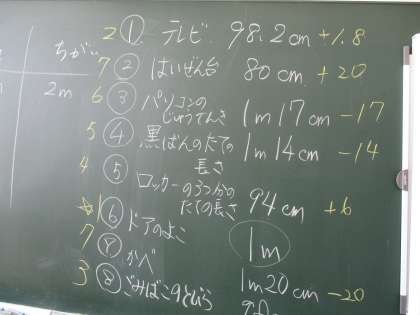 ちがい
2m
2 ① テレビ 98.2cm +1.8
7 ② はいぜん台 80cm +20
6 ③ パソコンの
じゅうでんき 1m17cm -17
5 ④ 黒ばんのたての
長さ 1m14cm -14
4 ⑤ ロッカーの3つ分の
たての長さ 94cm +6
1 ⑥ ドアのよこ 1m
7 ⑧ かべ 1m20cm -20
3 ⑧ ごみばこ